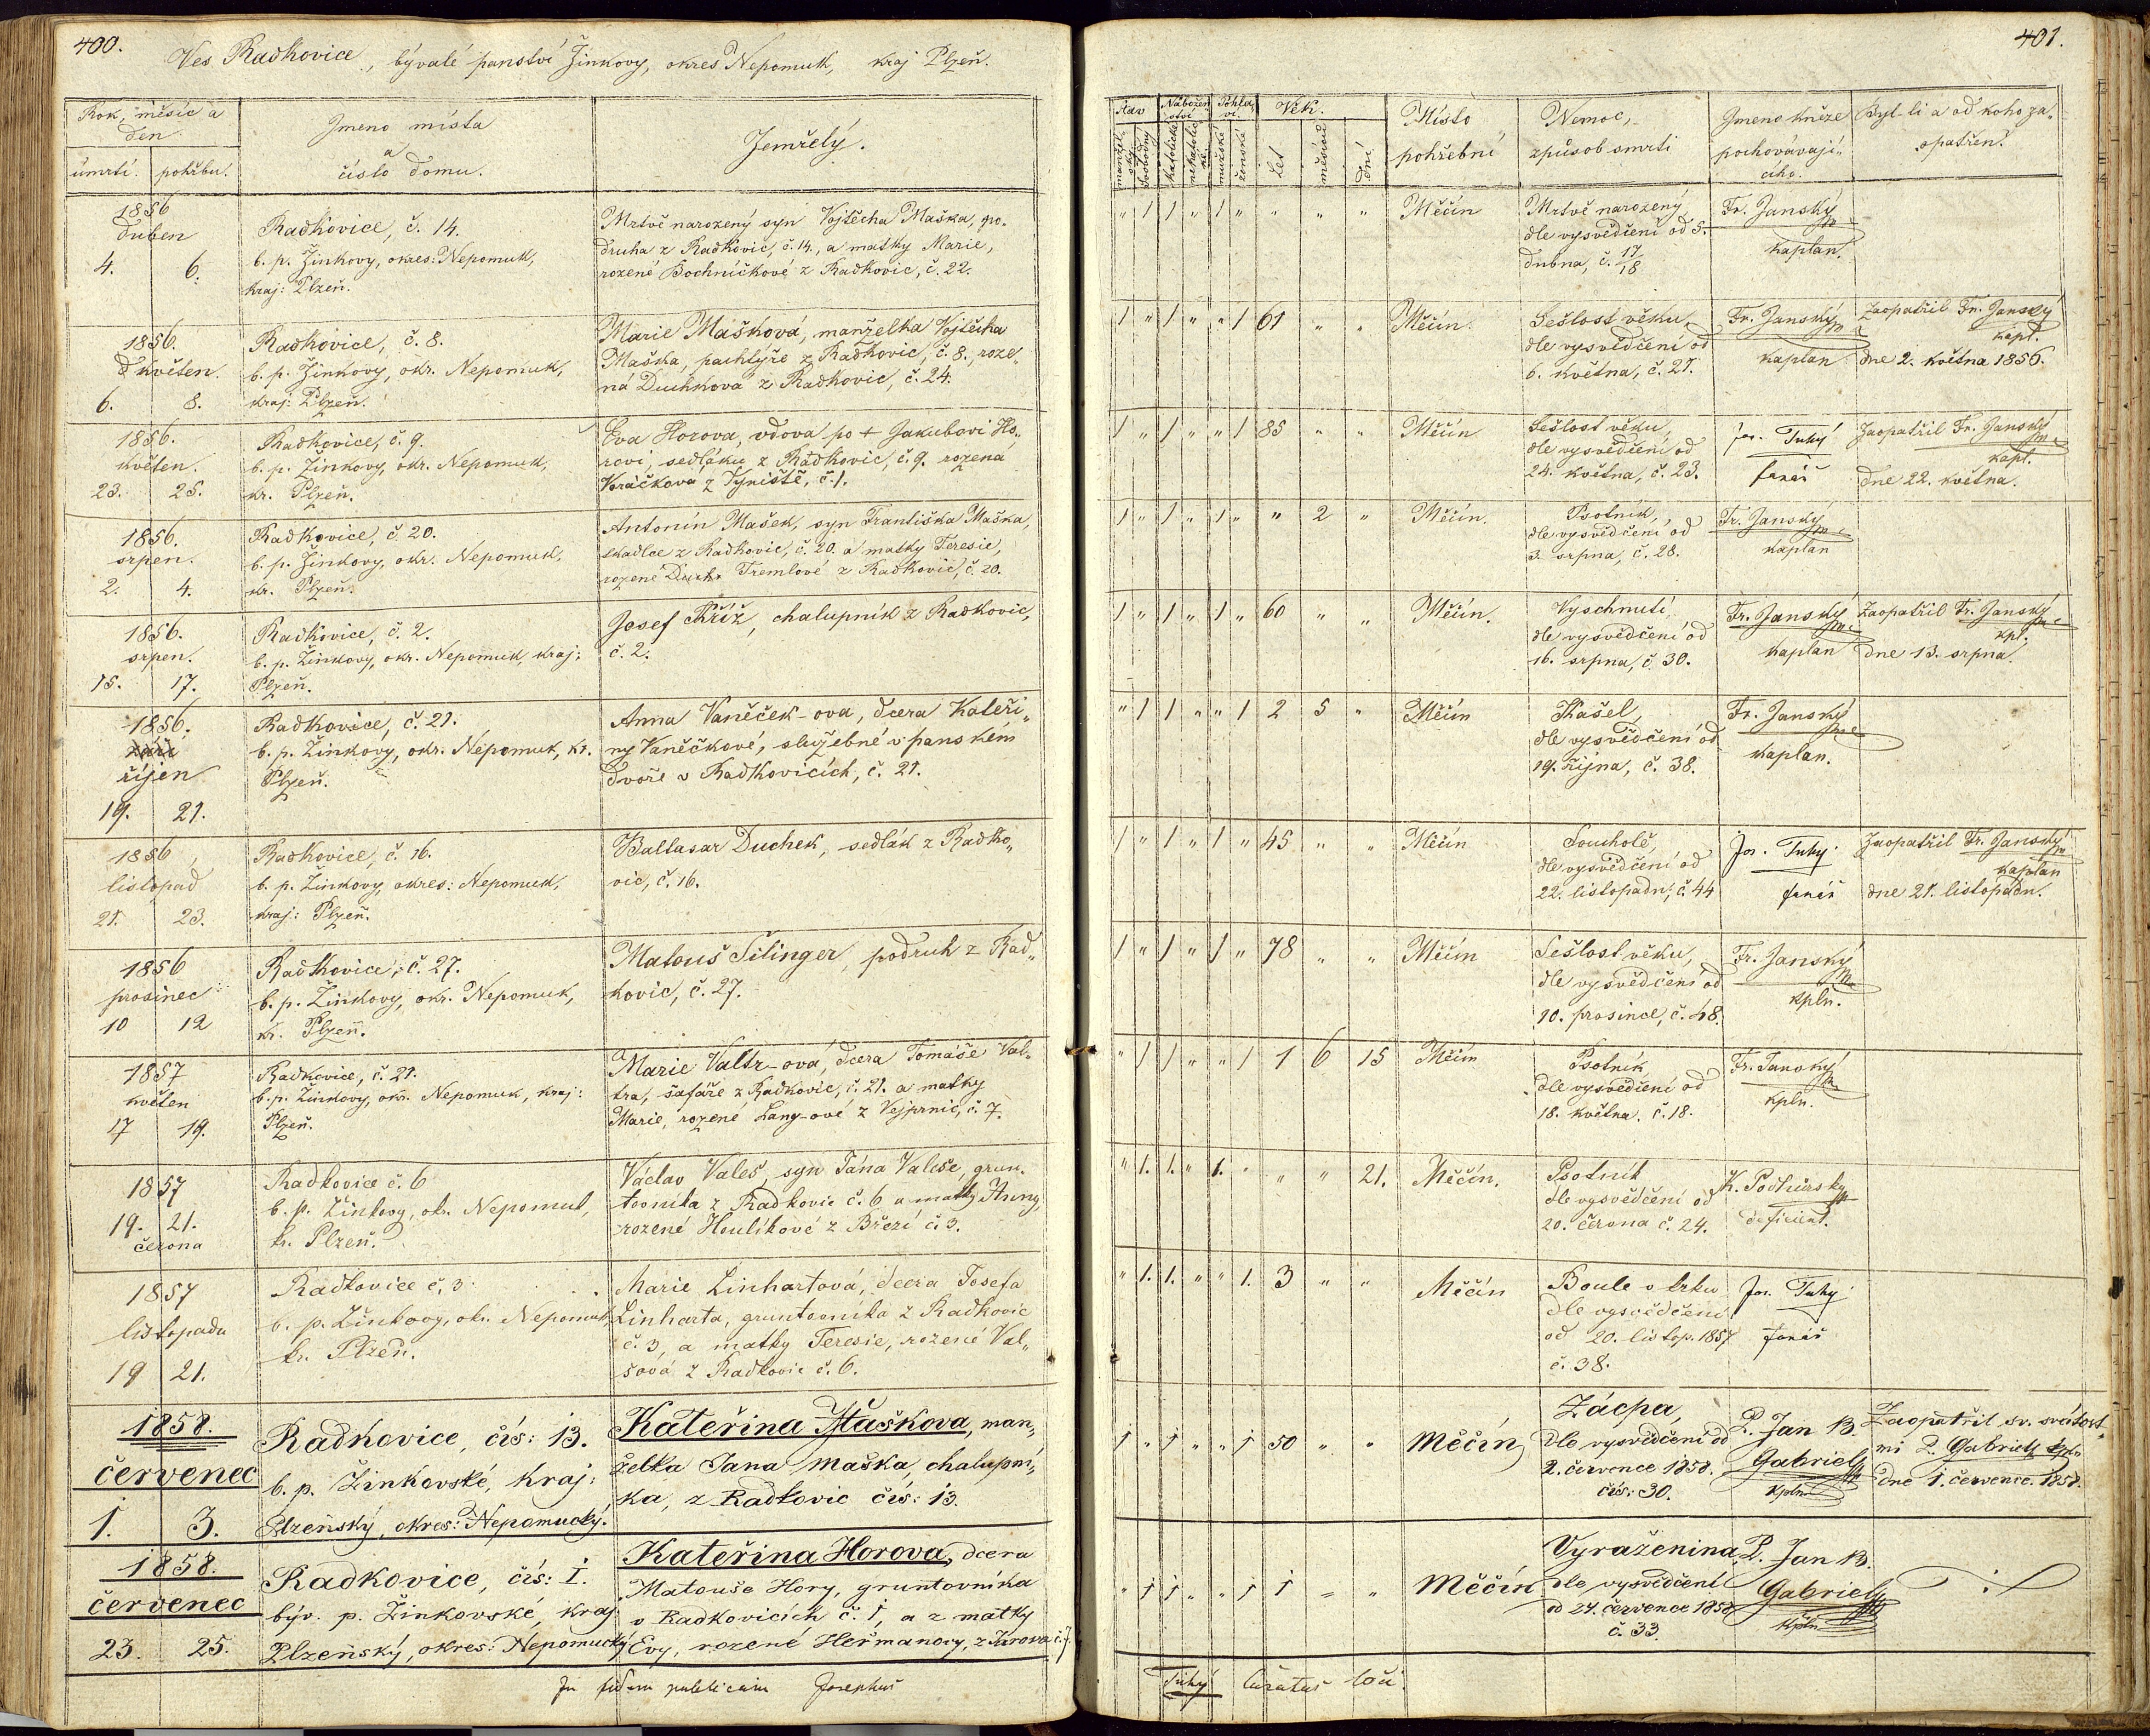 400.
Ves Radkovice, bývalé panství Žinkovy, okres Nepomuk, kraj Plzeň.
Rok, měsíc a
den
úmrtí. pohřbu.
Jmeno místa
a
číslo domu.
Zemřelý.
1856
duben
4. 6.
Radkovice, č. 14.
b. p. Žinkovy, okres: Nepomuk,
kraj: Plzeň.
Mrtvě narozený syn Vojtěcha Maška, po„
druha z Radkovic, č. 14., a matky Marie,
rozené Bochníčkové z Radkovic, č. 22.
1856.
květen.
6. 8.
Radkovice, č. 8.
b. p. Žinkovy, okr. Nepomuk,
kraj: Plzeň.
Marie Mašková, manželka Vojtěcha
Maška, pachtýře z Radkovic, č. 8., roze„
ná Duchkova z Radkovic, č. 24.
1856.
květen.
23. 25.
Radkovice, č. 9.
b. p. Žinkovy, okr. Nepomuk,
kr. Plzeň.
Eva Horova, vdova po + Jakubovi Ho„
rovi, sedláku z Radkovic, č. 9. rozená
Voráčková z Týniště, č. 1.
1856.
srpen.
2. 4.
Radkovice, č. 20.
b. p. Žinkovy, okr. Nepomuk,
kr. Plzeň.
Antonín Mašek, syn Františka Maška,
skadlce z Radkovic, č. 20. a matky Teresie,
rozené Tremlové z Radkovic, č. 20.
1856.
srpen.
15. 17.
Radkovice, č. 2.
b. p. Žinkovy, okr. Nepomuk, kraj:
Plzeň.
Josef Kříž, chalupník z Radkovic,
č. 2.
1856.
září
říjen
19. 21.
Radkovice, č. 21.
b. p. Žinkovy, okr. Nepomuk, kr.
Plzeň.
Anna Vaněček-ova, dcera Kateři„
ny Vaněčkové, služebné v panském
dvoře v Radkovicích, č. 21.
1856,
listopad
21. 23.
Radkovice, č. 16.
b. p. Žinkovy, okres: Nepomuk,
kraj: Plzeň.
Baltasar Duchek, sedlák z Radko„
vic, č. 16.
1856
prosinec
10 12
Radkovice, č. 27.
b. p. Žinkovy, okr. Nepomuk,
kr. Plzeň.
Matouš Šilinger, podruh z Rad„
kovic, č. 27.
1857
květen
17 19.
Radkovice, č. 21.
b. p. Žinkovy, okr. Nepomuk, kraj:
Plzeň.
Marie Valtr-ová, dcera Tomáše Val„
tra, šafáře z Radkovic, č. 21. a matky
Marie, rozené Lang-ové z Vejprnic, č. 7.
1857
19. 21.
června
Radkovice č. 6
b. p. Žinkovy, okr. Nepomuk,
kr. Plzeň.
Václav Valeš, syn Jána Valeše, grun„
tovníka z Radkovic č. 6 a matky Anny,
rozené Houlíkové z Březí č. 3.
1857
listopadu
19 21.
Radkovice č. 3
b. p. Žinkovy, okr. Nepomuk,
kr. Plzeň.
Marie Linhartová, dcera Josefa
Linharta, gruntovníka z Radkovic
č. 3, a matky Teresie, rozené Val„
šová z Radkovic č. 6.
1858.
červenec
1. 3.
Radkovice, čís: 13.
b. p. Žinkovské, kraj:
Plzeňský, okres: Nepomucký.
Kateřina Maškova, man„
želka Jana Maška, chalupní„
ka, z Radkovic čís: 13.
1858.
červenec
23. 25.
Radkovice, čís: I.
býv. p. Žinkovské, kraj
Plzeňský, okres: Nepomucký
Kateřina Horova, dcera
Matouše Hory, gruntovníka
v Radkovicích č. 1, a z matky
Evy, rozené Heřmanovy, z Jarova č. 7.
In fidem publicam Josephus
401.
Stav
Nábožen„
ství
Pohla„
ví.
Věk.
manžel„
ský
svobodný
katolické
nekatolic„
ké
mužské
ženské
let
měsíců
dní
Místo
pohřební
Nemoc,
způsob smrti
Jmeno kněze
pochovávají„
cího.
Byl-li a od koho za„
opatřen.
" 1 1 " 1 " " " " Měčín
Mrtvě narozený
dle vysvědčení od 5.
dubna, č. 17/18
Fr. Janský
kaplan.
1 " 1 " " 1 61 " " Měčín.
Sešlost věku
dle vysvědčení od
6. května, č. 21.
Fr. Janský
kaplan
Zaopatřil Fr. Janský
kapl.
dne 2. května 1856.
1 " 1 " " 1 85 " " Měčín
Sešlost věku,
dle vysvědčení od
24. května, č. 23.
Jos. Tuhý
farář
Zaopatřil Fr. Janský
kapl.
dne 22. května.
1 " 1 " 1 " " 2 " Měčín.
Psotník,
dle vysvědčení od
3. srpna, č. 28.
Fr. Janský
kaplan
1 " 1 " 1 " 60 " " Měčín.
Vyschnutí
dle vysvědčení od
16. srpna, č. 30.
Fr. Janský
kaplan
Zaopatřil Fr. Janský
kpl.
dne 13. srpna.
" 1 1 " " 1 2 5 " Měčín
Kašel,
dle vysvědčení od
19. října, č. 38.
Fr. Janský
kaplan.
1 " 1 " 1 " 45 " " Měčín
Souchotě,
dle vysvědčení od
22. listopadu, č. 44
Jos. Tuhý
farář
Zaopatřil Fr. Janský
kaplan
dne 21. listopadu.
1 " 1 " 1 " 78 " " Měčín
Sešlost věku,
dle vysvědčení od
10. prosince, č. 48.
Fr. Janský
kpln.
" 1 1 " " 1 1 6 15 Měčín
Psotník,
dle vysvědčení od
18. května. č. 18.
Fr. Janský
kpln.
" 1. 1. " 1. " " " 21. Měčín.
Psotník
dle vysvědčení od
20. června č. 24.
K. Podhůrský
deficient.
" 1. 1. " " 1. 3 " " Měčín
Boule v krku
dle vysvědčení
od 20. listop. 1857
č. 38.
Jos. Tuhý
farář
1 " 1 " " 1 50 " " Měčín
Zácpa,
dle vysvědčení od
2. července 1858.
čís: 30.
P. Jan B.
Gabriel
kpln
Zaopatřil sv. svátost„
mi P. Gabriel kpln
dne 1. července. 1858.
" 1 1 " " 1 1 " " Měčín
Vyraženina,
dle vysvědčení
od 24. července 1858
č. 33.
P. Jan B.
Gabriel
kpln
Tuhý curatus loci.